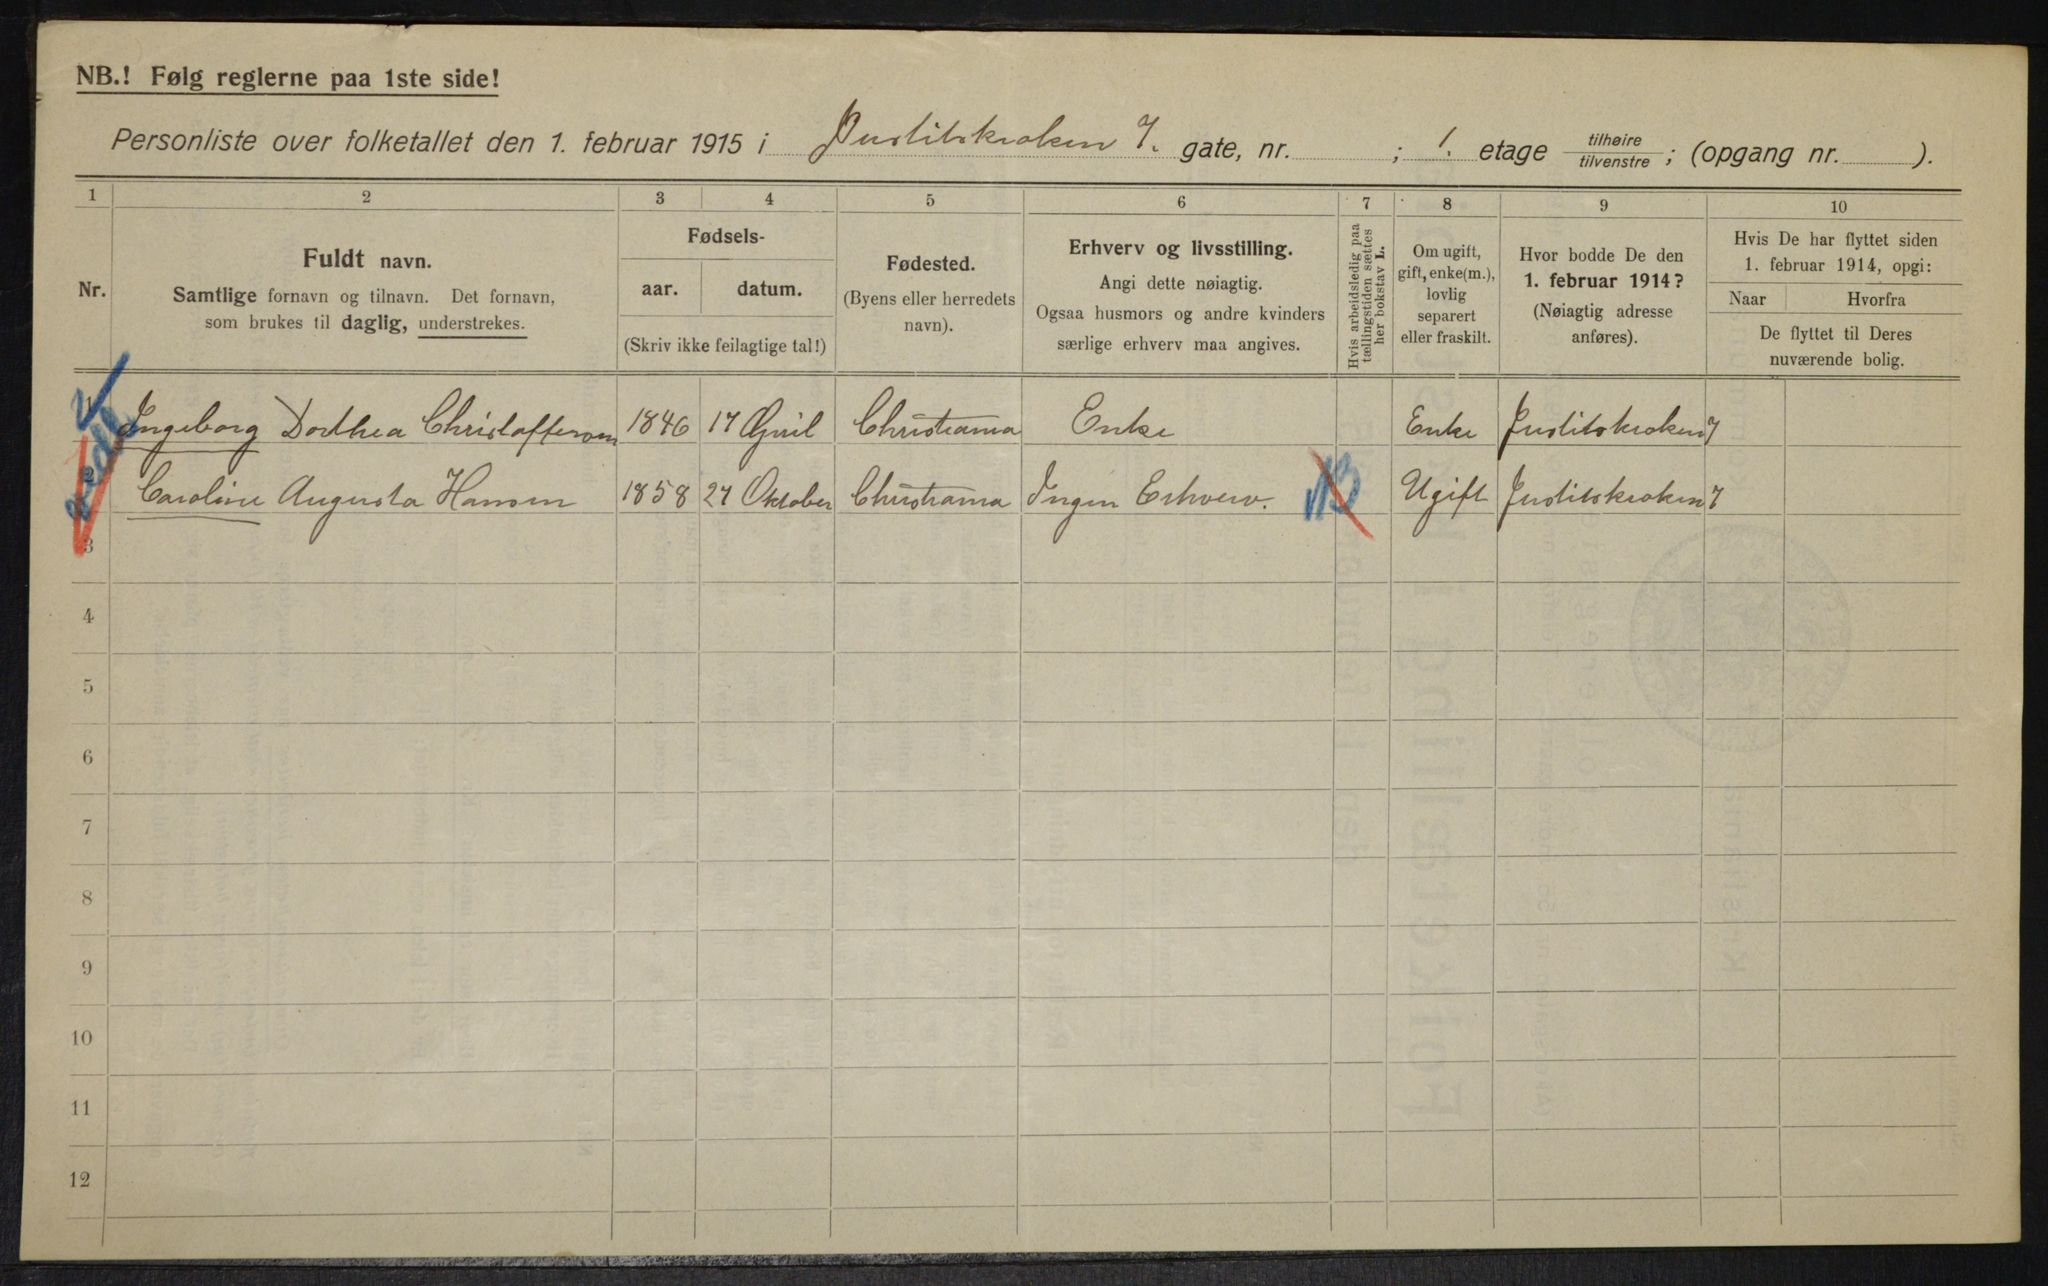 NB.! Følg reglerne paa 1ste side!
Personliste over folketallet den 1. februar 1915 i Justitskroken 7. gate, nr. ; 1. etage tilhøire tilvenstre ; (opgang nr. ).
1 2 3 4 5 6 7 8 9 10
Nr.
Fuldt navn.
Samtlige fornavn og tilnavn. Det fornavn,
som brukes til daglig, understrekes.
Fødsels-
aar. datum.
(Skriv ikke feilagtige tal!)
Fødested.
(Byens eller herredets
navn).
Erhverv og livsstilling.
Angi dette nøiagtig.
Ogsaa husmors og andre kvinders
særlige erhverv maa angives.
Hvis arbeidsledig paa
tællingstiden sættes
her bokstav L.
Om ugift,
gift, enke(m.),
lovlig
separert
eller fraskilt.
Hvor bodde De den
1. februar 1914?
(Nøiagtig adresse
anføres).
Hvis De har flyttet siden
1. februar 1914, opgi:
Naar Hvorfra
De flyttet til Deres
nuværende bolig.
1 Ingeborg Dorthea Christoffersen 1846 17 April Christiania Enke Enke Justitskroken 7
2 Caroline Augusta Hansen 1858 27 Oktober Christiania Ingen Erhverv. Ugift Justitskroken 7
3
4
5
6
7
8
9
10
11
12